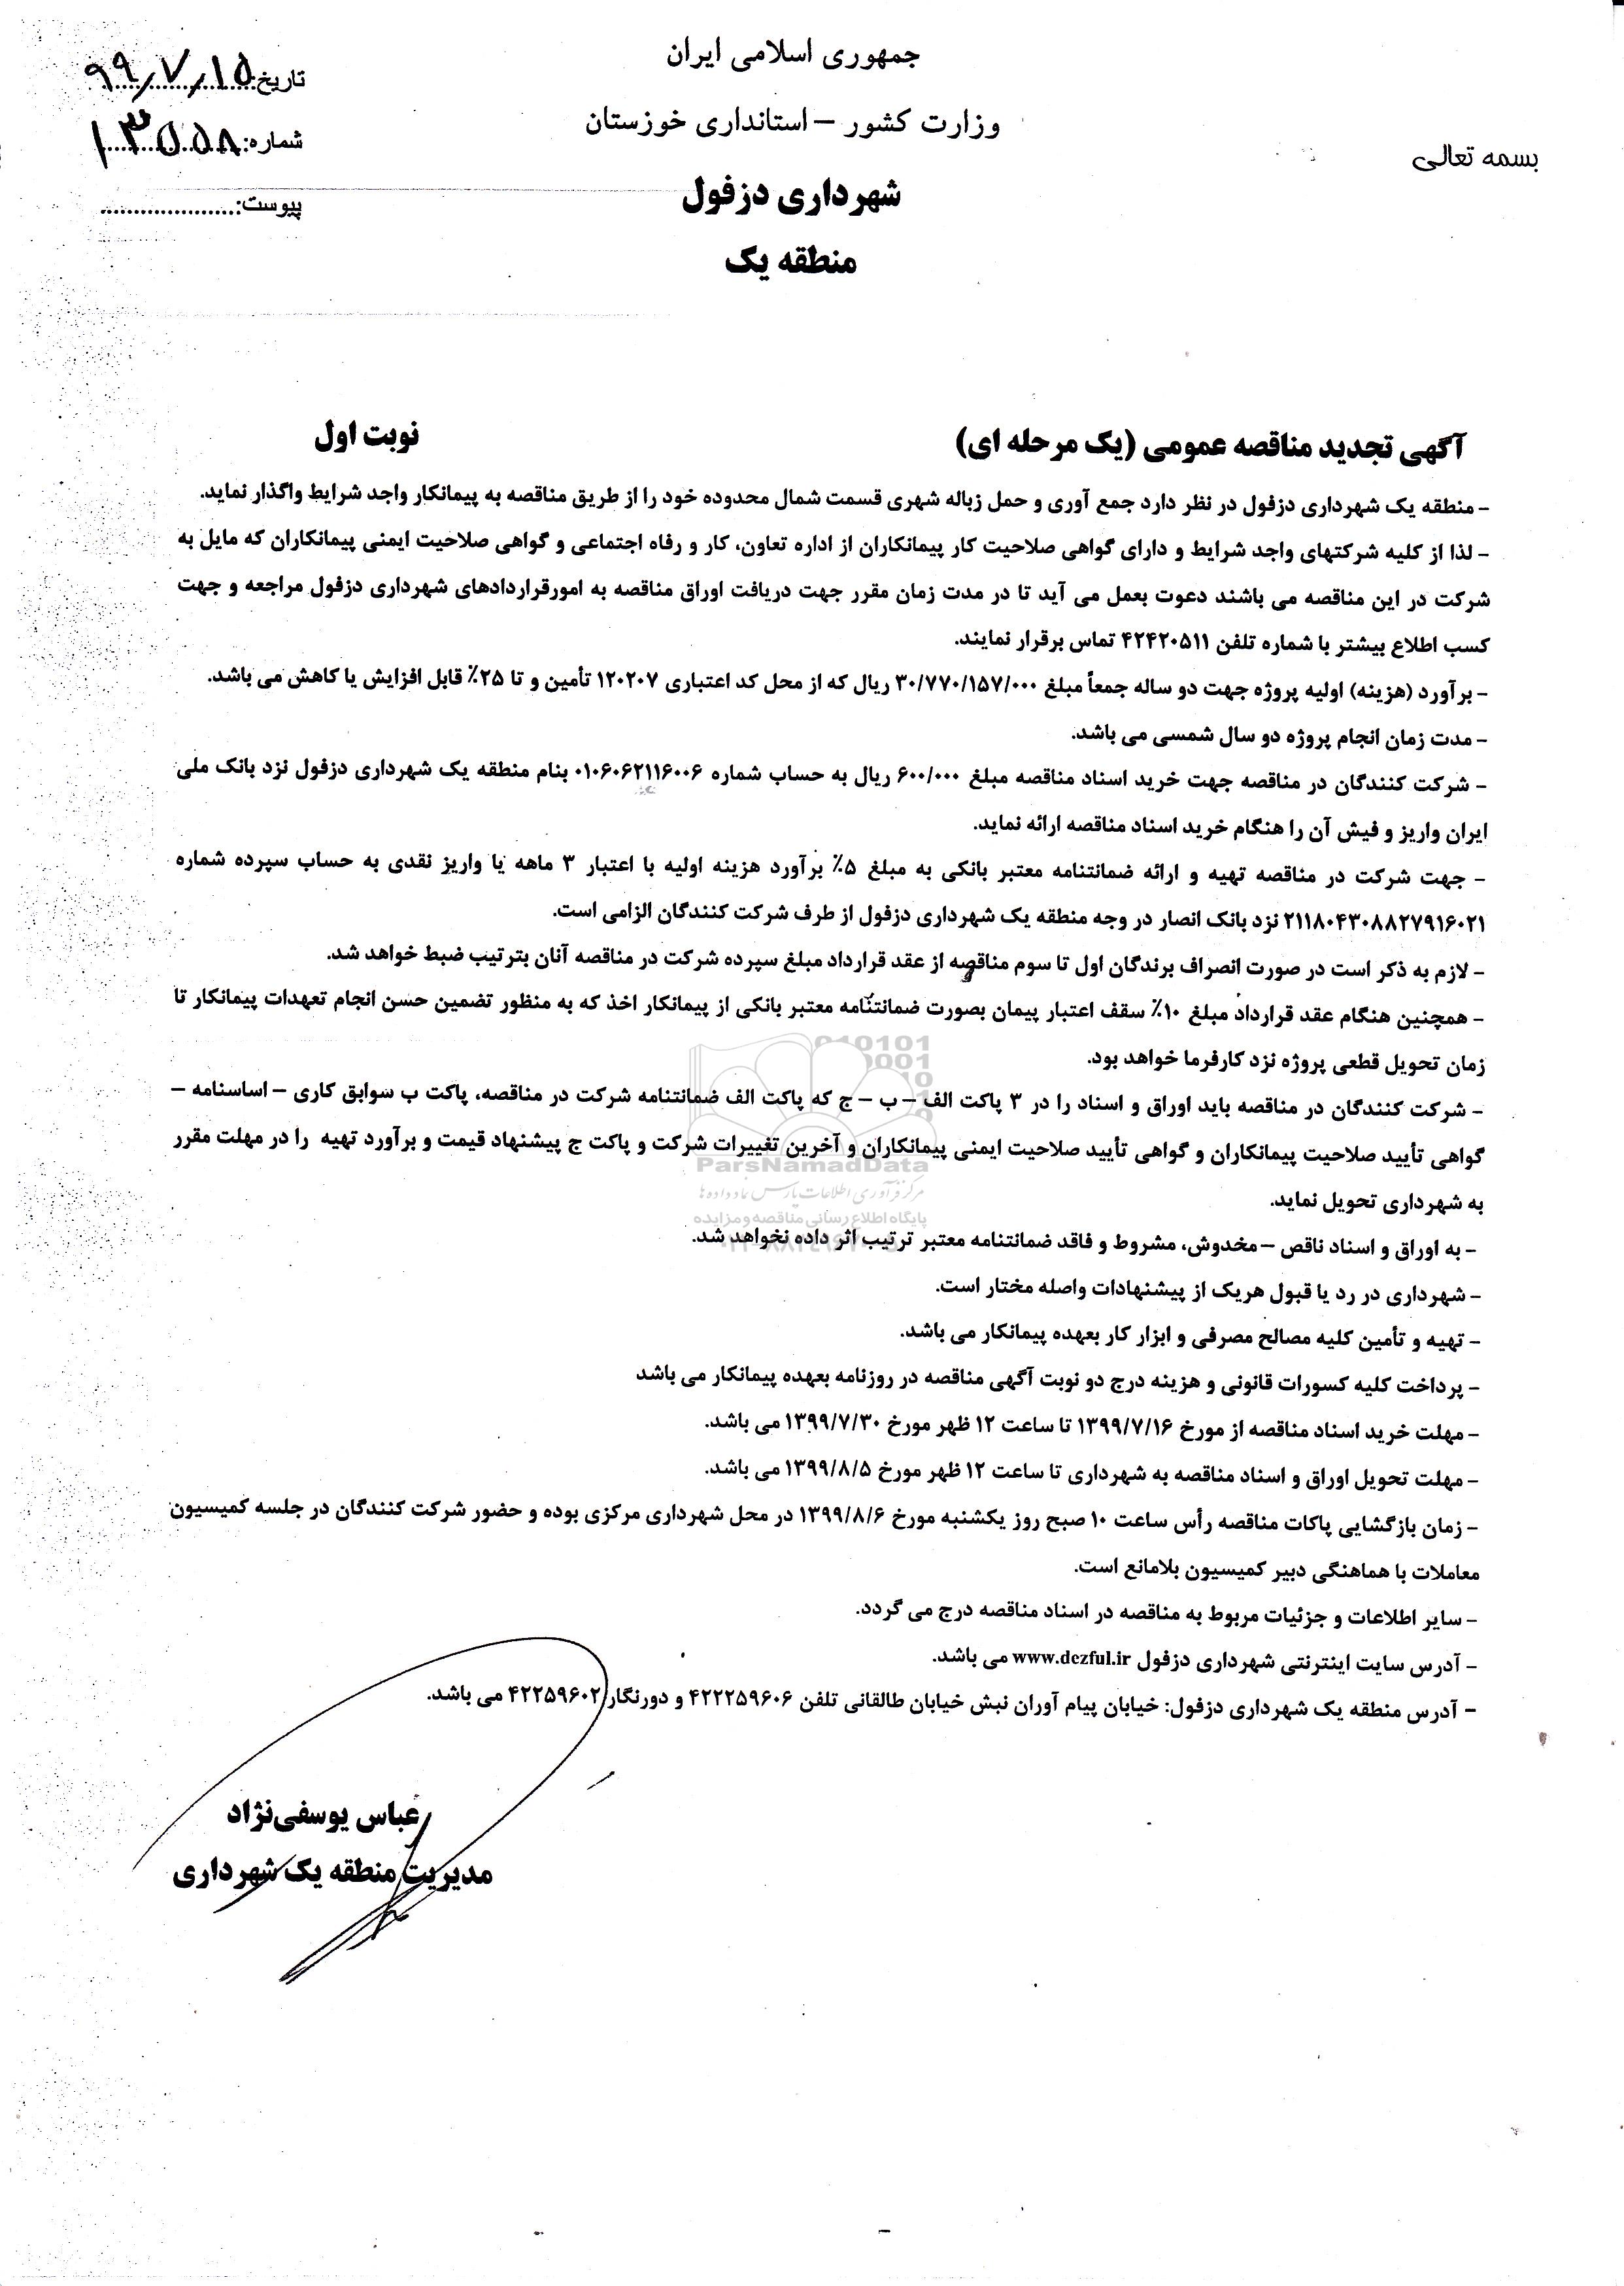 بسمه تعالی
جمهوری اسلامی ایران
وزارت کشور – استانداری خوزستان
شهرداری دزفول
منطقه یک
تاریخ: ۹۹/۷/۱۵
شماره: ۱۳۵۵۸
پیوست:
آگهی تجدید مناقصه عمومی (یک مرحله ای)
نوبت اول
- منطقه یک شهرداری دزفول در نظر دارد جمع آوری و حمل زباله شهری قسمت شمال محدوده خود را از طریق مناقصه به پیمانکار واجد شرایط واگذار نماید.
- لذا از کلیه شرکتهای واجد شرایط و دارای گواهی صلاحیت کار پیمانکاران از اداره تعاون، کار و رفاه اجتماعی و گواهی صلاحیت ایمنی پیمانکاران که مایل به
شرکت در این مناقصه می باشند دعوت بعمل می آید تا در مدت زمان مقرر جهت دریافت اوراق مناقصه به امورقراردادهای شهرداری دزفول مراجعه و جهت
کسب اطلاع بیشتر با شماره تلفن ۴۲۴۲۰۵۱۱ تماس برقرار نمایند.
- برآورد (هزینه) اولیه پروژه جهت دو ساله جمعاً مبلغ ۳۰/۷۷۰/۱۵۷/۰۰۰ ریال که از محل کد اعتباری ۱۲۰۲۰۷ تأمین و تا ۲۵٪ قابل افزایش یا کاهش می باشد.
- مدت زمان انجام پروژه دو سال شمسی می باشد.
- شرکت کنندگان در مناقصه جهت خرید اسناد مناقصه مبلغ ۶۰۰/۰۰۰ ریال به حساب شماره ۰۱۰۶۰۶۲۱۱۶۰۰۶ بنام منطقه یک شهرداری دزفول نزد بانک ملی
ایران واریز و فیش آن را هنگام خرید اسناد مناقصه ارائه نماید.
- جهت شرکت در مناقصه تهیه و ارائه ضمانتنامه معتبر بانکی به مبلغ ۵٪ برآورد هزینه اولیه با اعتبار ۳ ماهه یا واریز نقدی به حساب سپرده شماره
۲۱۱۸۰۴۳۰۸۸۲۷۹۱۶۰۲۱ نزد بانک انصار در وجه منطقه یک شهرداری دزفول از طرف شرکت کنندگان الزامی است.
- لازم به ذکر است در صورت انصراف برندگان اول تا سوم مناقصه از عقد قرارداد مبلغ سپرده شرکت در مناقصه آنان بترتیب ضبط خواهد شد.
- همچنین هنگام عقد قرارداد مبلغ ۱۰٪ سقف اعتبار پیمان بصورت ضمانتنامه معتبر بانکی از پیمانکار اخذ که به منظور تضمین حسن انجام تعهدات پیمانکار تا
زمان تحویل قطعی پروژه نزد کارفرما خواهد بود.
- شرکت کنندگان در مناقصه باید اوراق و اسناد را در ۳ پاکت الف – ب – ج که پاکت الف ضمانتنامه شرکت در مناقصه، پاکت ب سوابق کاری – اساسنامه –
گواهی تأیید صلاحیت پیمانکاران و گواهی تأیید صلاحیت ایمنی پیمانکاران و آخرین تغییرات شرکت و پاکت ج پیشنهاد قیمت و برآورد تهیه را در مهلت مقرر
به شهرداری تحویل نماید.
- به اوراق و اسناد ناقص – مخدوش، مشروط و فاقد ضمانتنامه معتبر ترتیب اثر داده نخواهد شد.
- شهرداری در رد یا قبول هریک از پیشنهادات واصله مختار است.
- تهیه و تأمین کلیه مصالح مصرفی و ابزار کار بعهده پیمانکار می باشد.
- پرداخت کلیه کسورات قانونی و هزینه درج دو نوبت آگهی مناقصه در روزنامه بعهده پیمانکار می باشد
- مهلت خرید اسناد مناقصه از مورخ ۱۳۹۹/۷/۱۶ تا ساعت ۱۲ ظهر مورخ ۱۳۹۹/۷/۳۰ می باشد.
- مهلت تحویل اوراق و اسناد مناقصه به شهرداری تا ساعت ۱۲ ظهر مورخ ۱۳۹۹/۸/۵ می باشد.
- زمان بازگشایی پاکات مناقصه رأس ساعت ۱۰ صبح روز یکشنبه مورخ ۱۳۹۹/۸/۶ در محل شهرداری مرکزی بوده و حضور شرکت کنندگان در جلسه کمیسیون
معاملات با هماهنگی دبیر کمیسیون بلامانع است.
- سایر اطلاعات و جزئیات مربوط به مناقصه در اسناد مناقصه درج می گردد.
- آدرس سایت اینترنتی شهرداری دزفول www.dezful.ir می باشد.
- آدرس منطقه یک شهرداری دزفول: خیابان پیام آوران نبش خیابان طالقانی تلفن ۴۲۲۲۵۹۶۰۶ و دورنگار ۴۲۲۵۹۶۰۲ می باشد.
عباس یوسفی‌نژاد
مدیریت منطقه یک شهرداری
ParsNamadData
مرکز فرآوری اطلاعات پارس نماد داده ها
پایگاه اطلاع رسانی مناقصه و مزایده